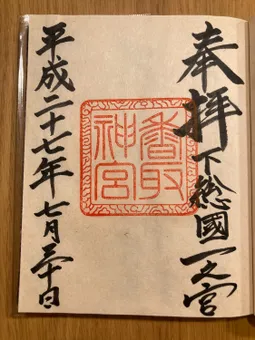 奉拝
下総國一之宮
香取神宮
平成二十七年七月三十日